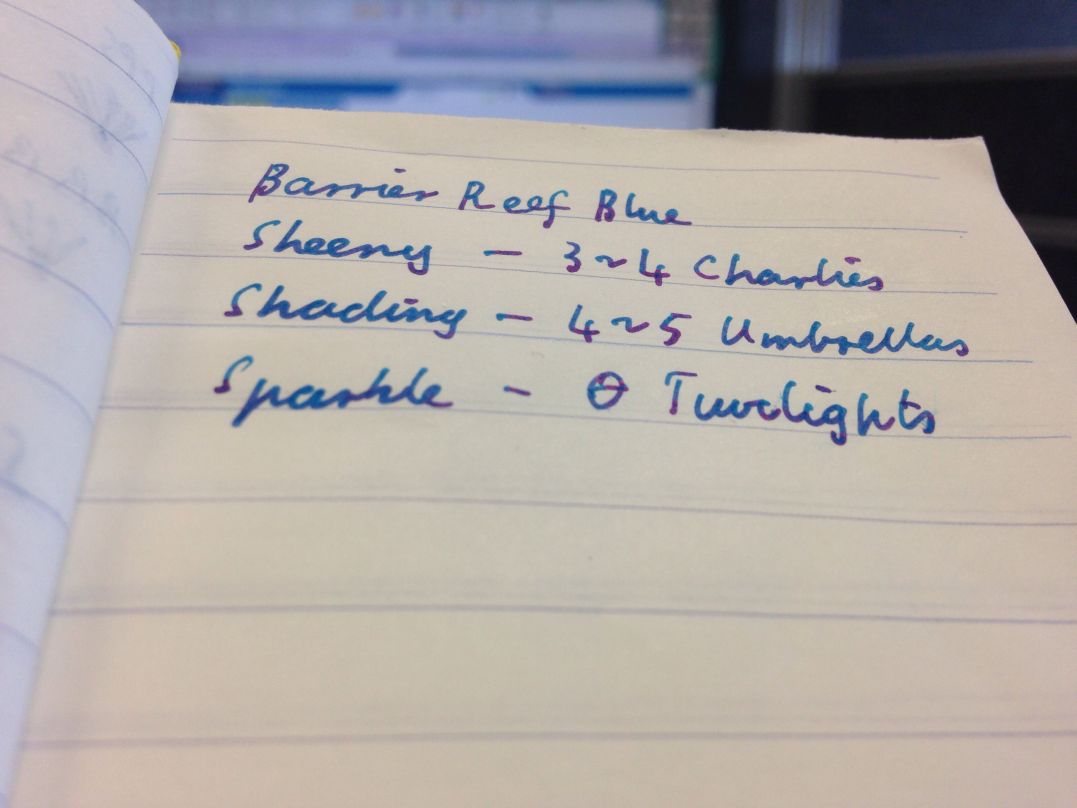 Barrier Reef Blue
Sheeny - 3~4 Charlies
Shading - 4~5 Umbrellas
Sparkle - 0 Twilights